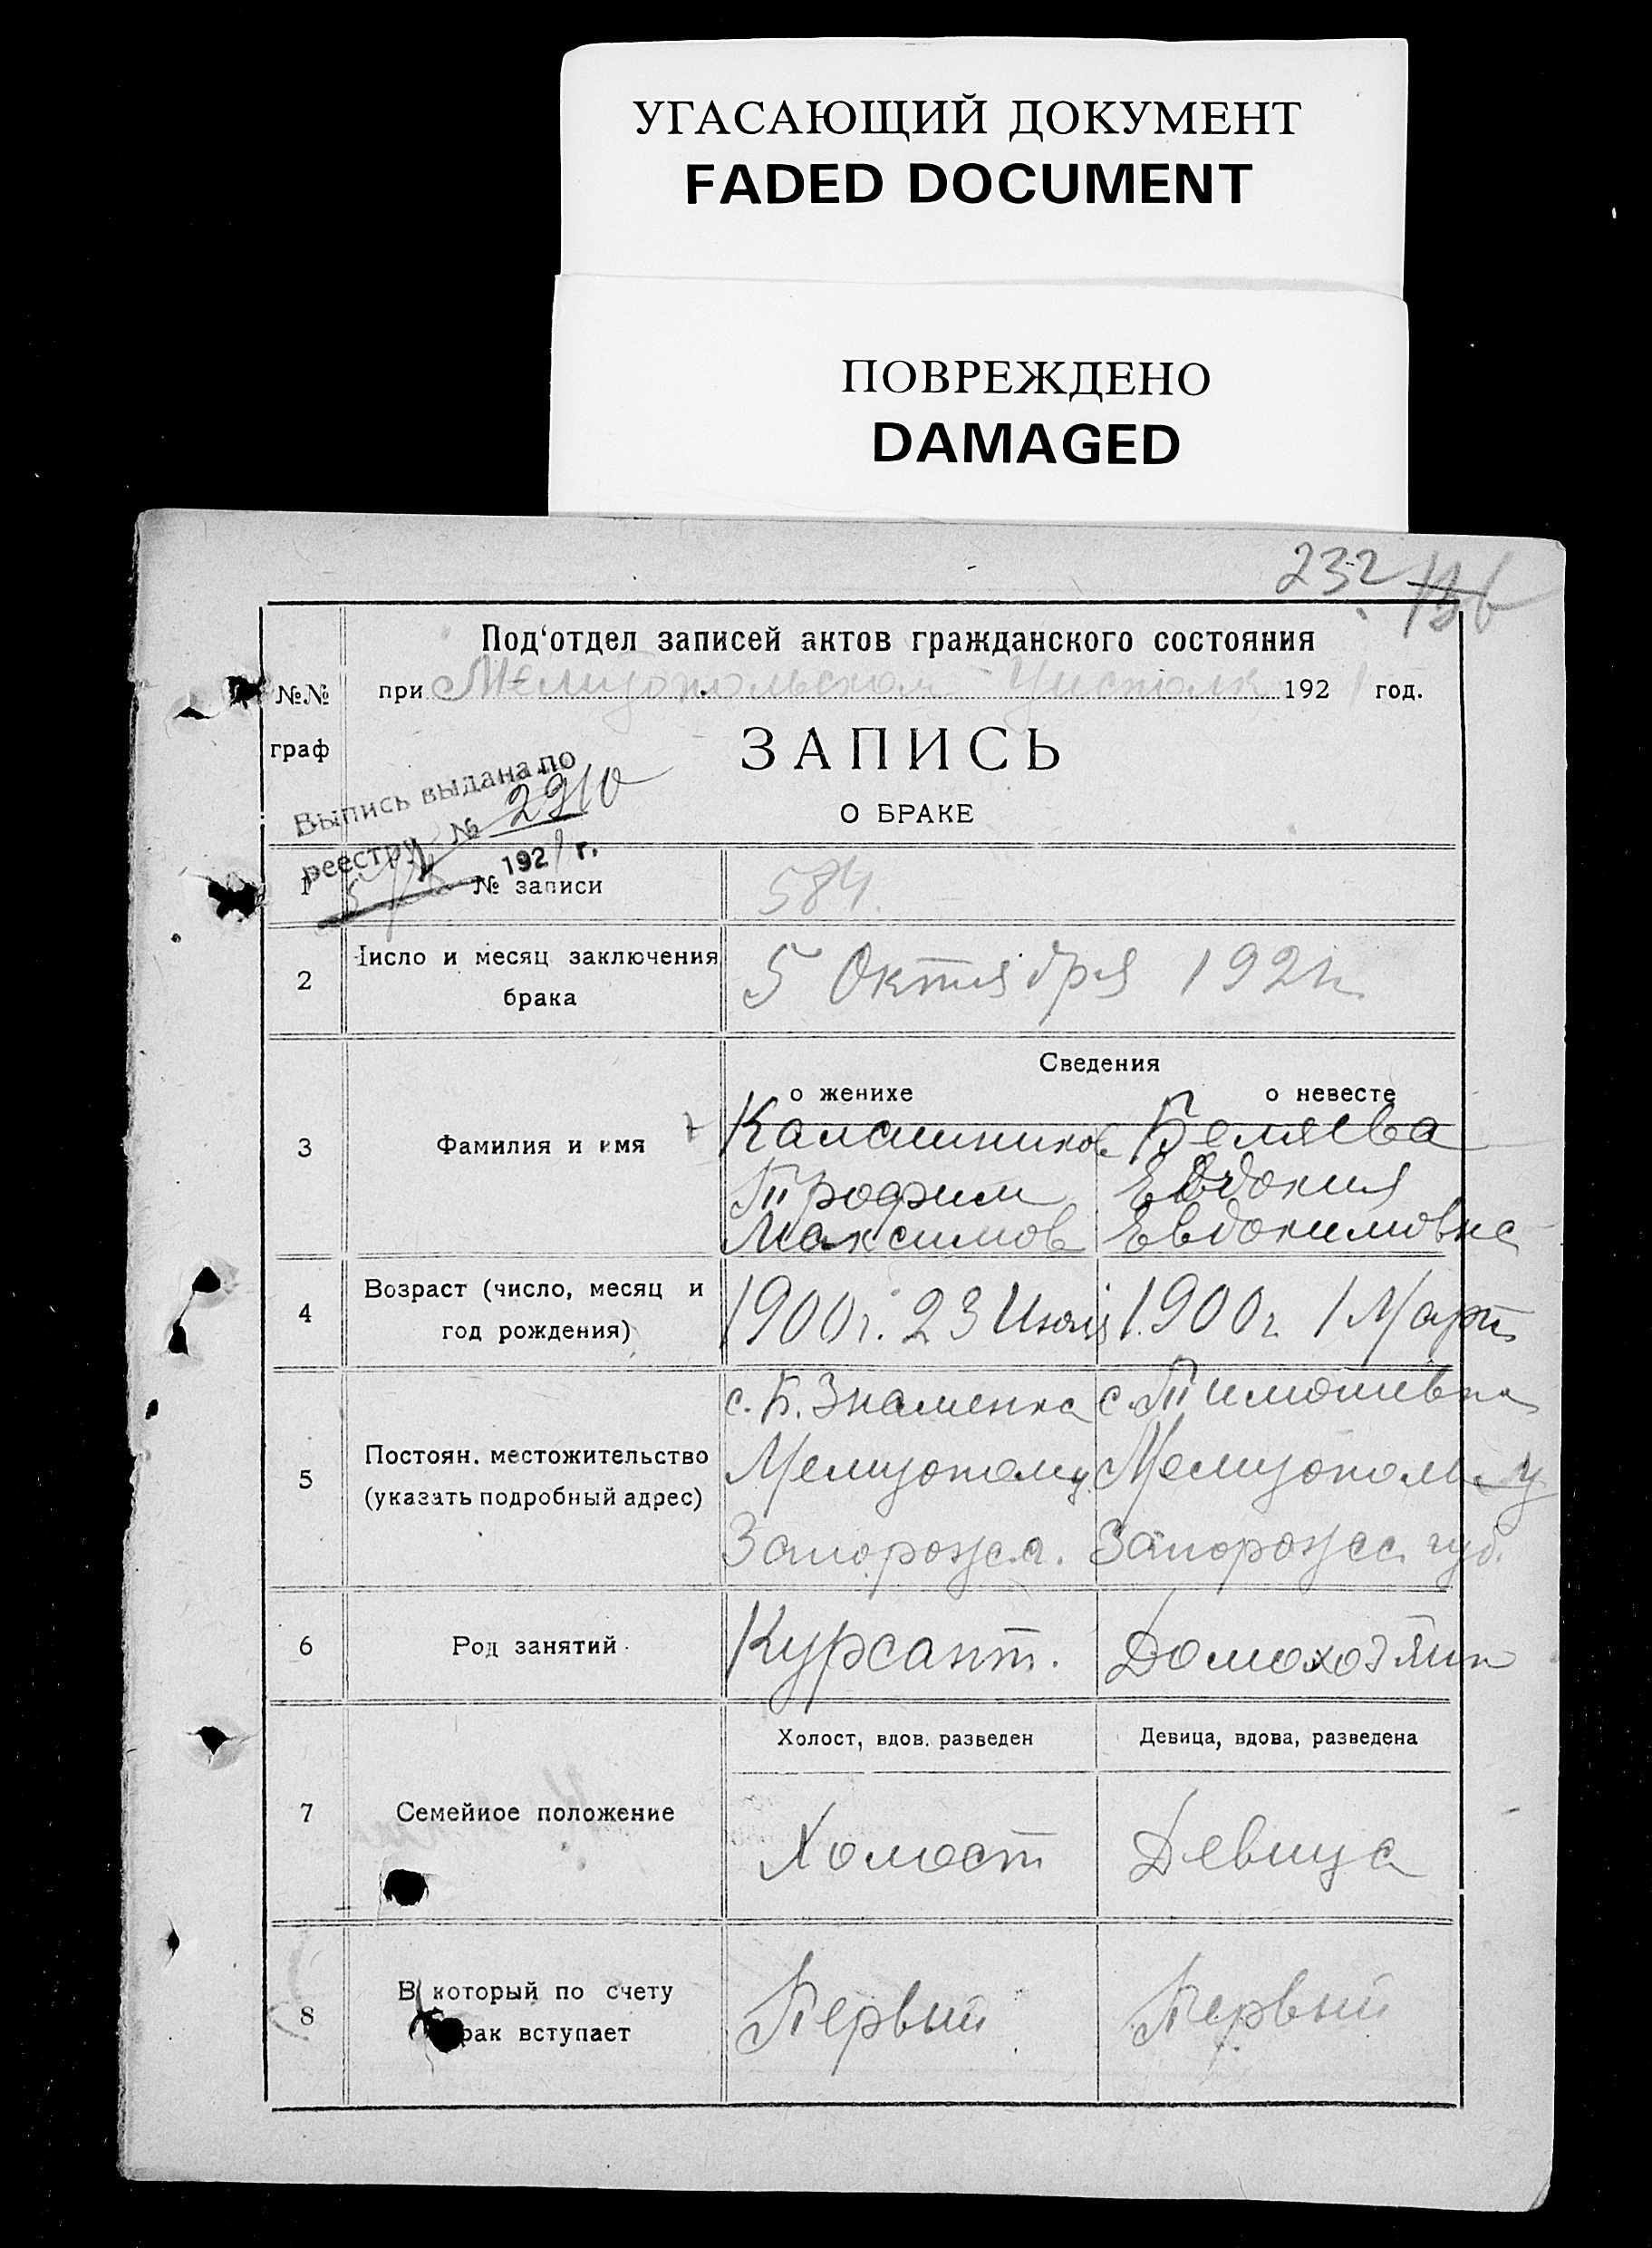 УГАСАЮЩИЙ ДОКУМЕНТ
FADED DOCUMENT
ПОВРЕЖДЕНО
DAMAGED
232
Под‘отдел записей актов гражданского состояния
№№ граф
при Мелитопольском 192 год.
ЗАПИСЬ
О БРАКЕ
Выпись выдана по
реестру № 2910
1921 г.
1 № записи 584.
2 Число и месяц заключения брака 5 Октября 1921 г.
Сведения
о женихе о невесте
3 Фамилия и имя Калашников Беляева
Трофим Евдокия
Максимов Евдокимовна
4 Возраст (число, месяц и год рождения) 1900 г. 23 Июля 1900 г. 1 Март
5 Постоян. местожительство (указать подробный адрес) с. Б. Знаменка с. Тимошивка
Мелитополь у. Мелитополь у
Запорожс. г. Запорожсс. губ.
6 Род занятий. Курсант. Домохозяйк
Холост, вдов. разведен Девица, вдова, разведена
7 Семейное положение Холост Девица
8 В который по счету брак вступает Первый Первый